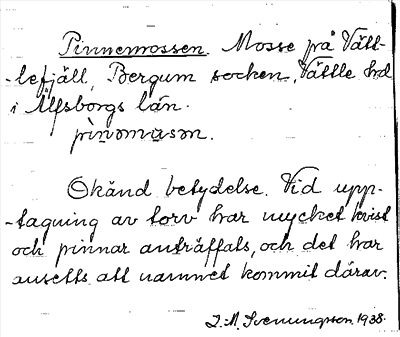 Pinnemossen. Mosse på Vätt-
-lefjäll, Bergum socken, Vättle hd
i Älfsborgs län.
pìnəmɷsən.
Okänd betydelse. Vid upp-
-tagning av torv har mycket kvist
och pinnar anträffats, och det har
ansetts att namnet kommit därav.
J.M. Svenungsson. 1938.